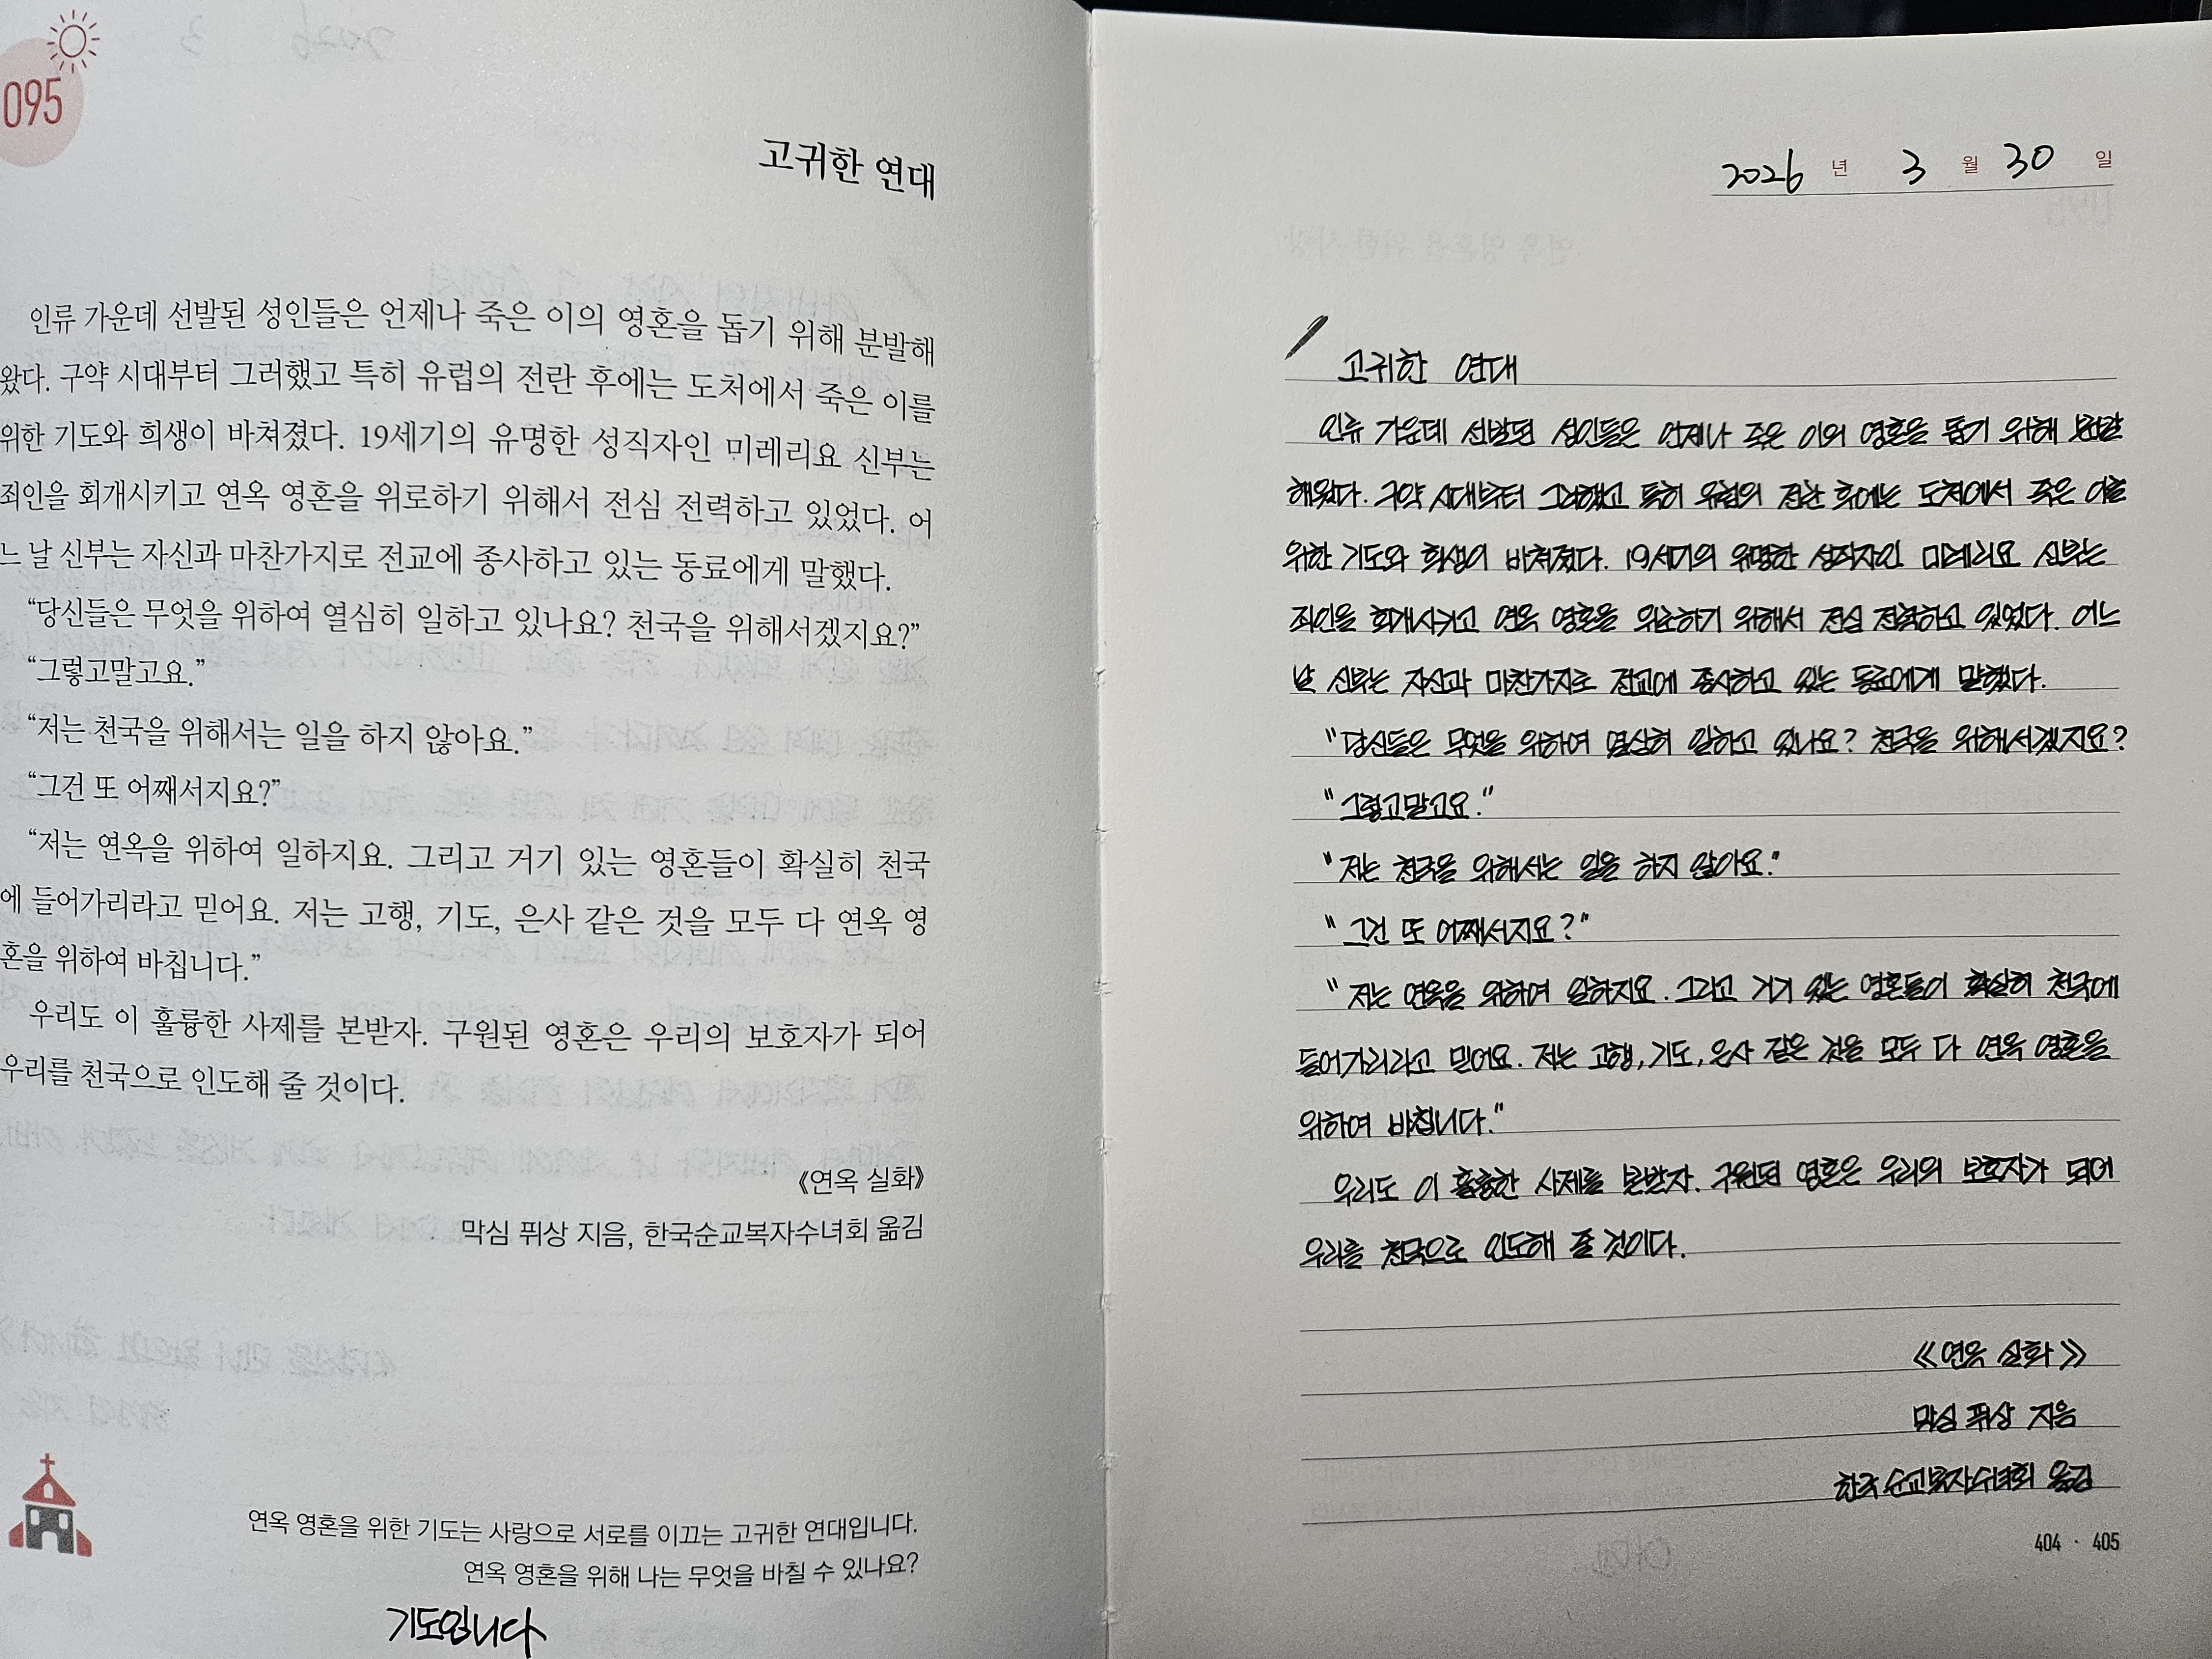 095
고귀한 연대
인류 가운데 선발된 성인들은 언제나 죽은 이의 영혼을 돕기 위해 분발해
왔다. 구약 시대부터 그러했고 특히 유럽의 전란 후에는 도처에서 죽은 이를
위한 기도와 희생이 바쳐졌다. 19세기의 유명한 성직자인 미레리요 신부는
죄인을 회개시키고 연옥 영혼을 위로하기 위해서 전심 전력하고 있었다. 어
느 날 신부는 자신과 마찬가지로 전교에 종사하고 있는 동료에게 말했다.
“당신들은 무엇을 위하여 열심히 일하고 있나요? 천국을 위해서겠지요?”
“그렇고말고요.”
“저는 천국을 위해서는 일을 하지 않아요.”
“그건 또 어째서지요?”
“저는 연옥을 위하여 일하지요. 그리고 거기 있는 영혼들이 확실히 천국
에 들어가리라고 믿어요. 저는 고행, 기도, 은사 같은 것을 모두 다 연옥 영
혼을 위하여 바칩니다.”
우리도 이 훌륭한 사제를 본받자. 구원된 영혼은 우리의 보호자가 되어
우리를 천국으로 인도해 줄 것이다.
《연옥 실화》
막심 퓌상 지음, 한국순교복자수녀회 옮김
연옥 영혼을 위한 기도는 사랑으로 서로를 이끄는 고귀한 연대입니다.
연옥 영혼을 위해 나는 무엇을 바칠 수 있나요?
기도입니다
2026 년 3 월 30 일
고귀한 연대
인류 가운데 선발된 성인들은 언제나 죽은 이의 영혼을 돕기 위해 분발
해왔다. 구약 시대부터 그러했고 특히 유럽의 전란 후에는 도처에서 죽은 이를
위한 기도와 희생이 바쳐졌다. 19세기의 유명한 성직자인 미레리요 신부는
죄인을 회개시키고 연옥 영혼을 위로하기 위해서 전심 전력하고 있었다. 어느
날 신부는 자신과 마찬가지로 전교에 종사하고 있는 동료에게 말했다.
"당신들은 무엇을 위하여 열심히 일하고 있나요? 천국을 위해서겠지요?
"그렇고말고요."
"저는 천국을 위해서는 일을 하지 않아요."
"그건 또 어째서지요?"
"저는 연옥을 위하여 일하지요. 그리고 거기 있는 영혼들이 확실히 천국에
들어가리라고 믿어요. 저는 고행, 기도, 은사 같은 것을 모두 다 연옥 영혼을
위하여 바칩니다."
우리도 이 훌륭한 사제를 본받자. 구원된 영혼은 우리의 보호자가 되어
우리를 천국으로 인도해 줄 것이다.
《연옥 실화》
막심 퓌상 지음
한국순교복자수녀회 옮김
404 · 405